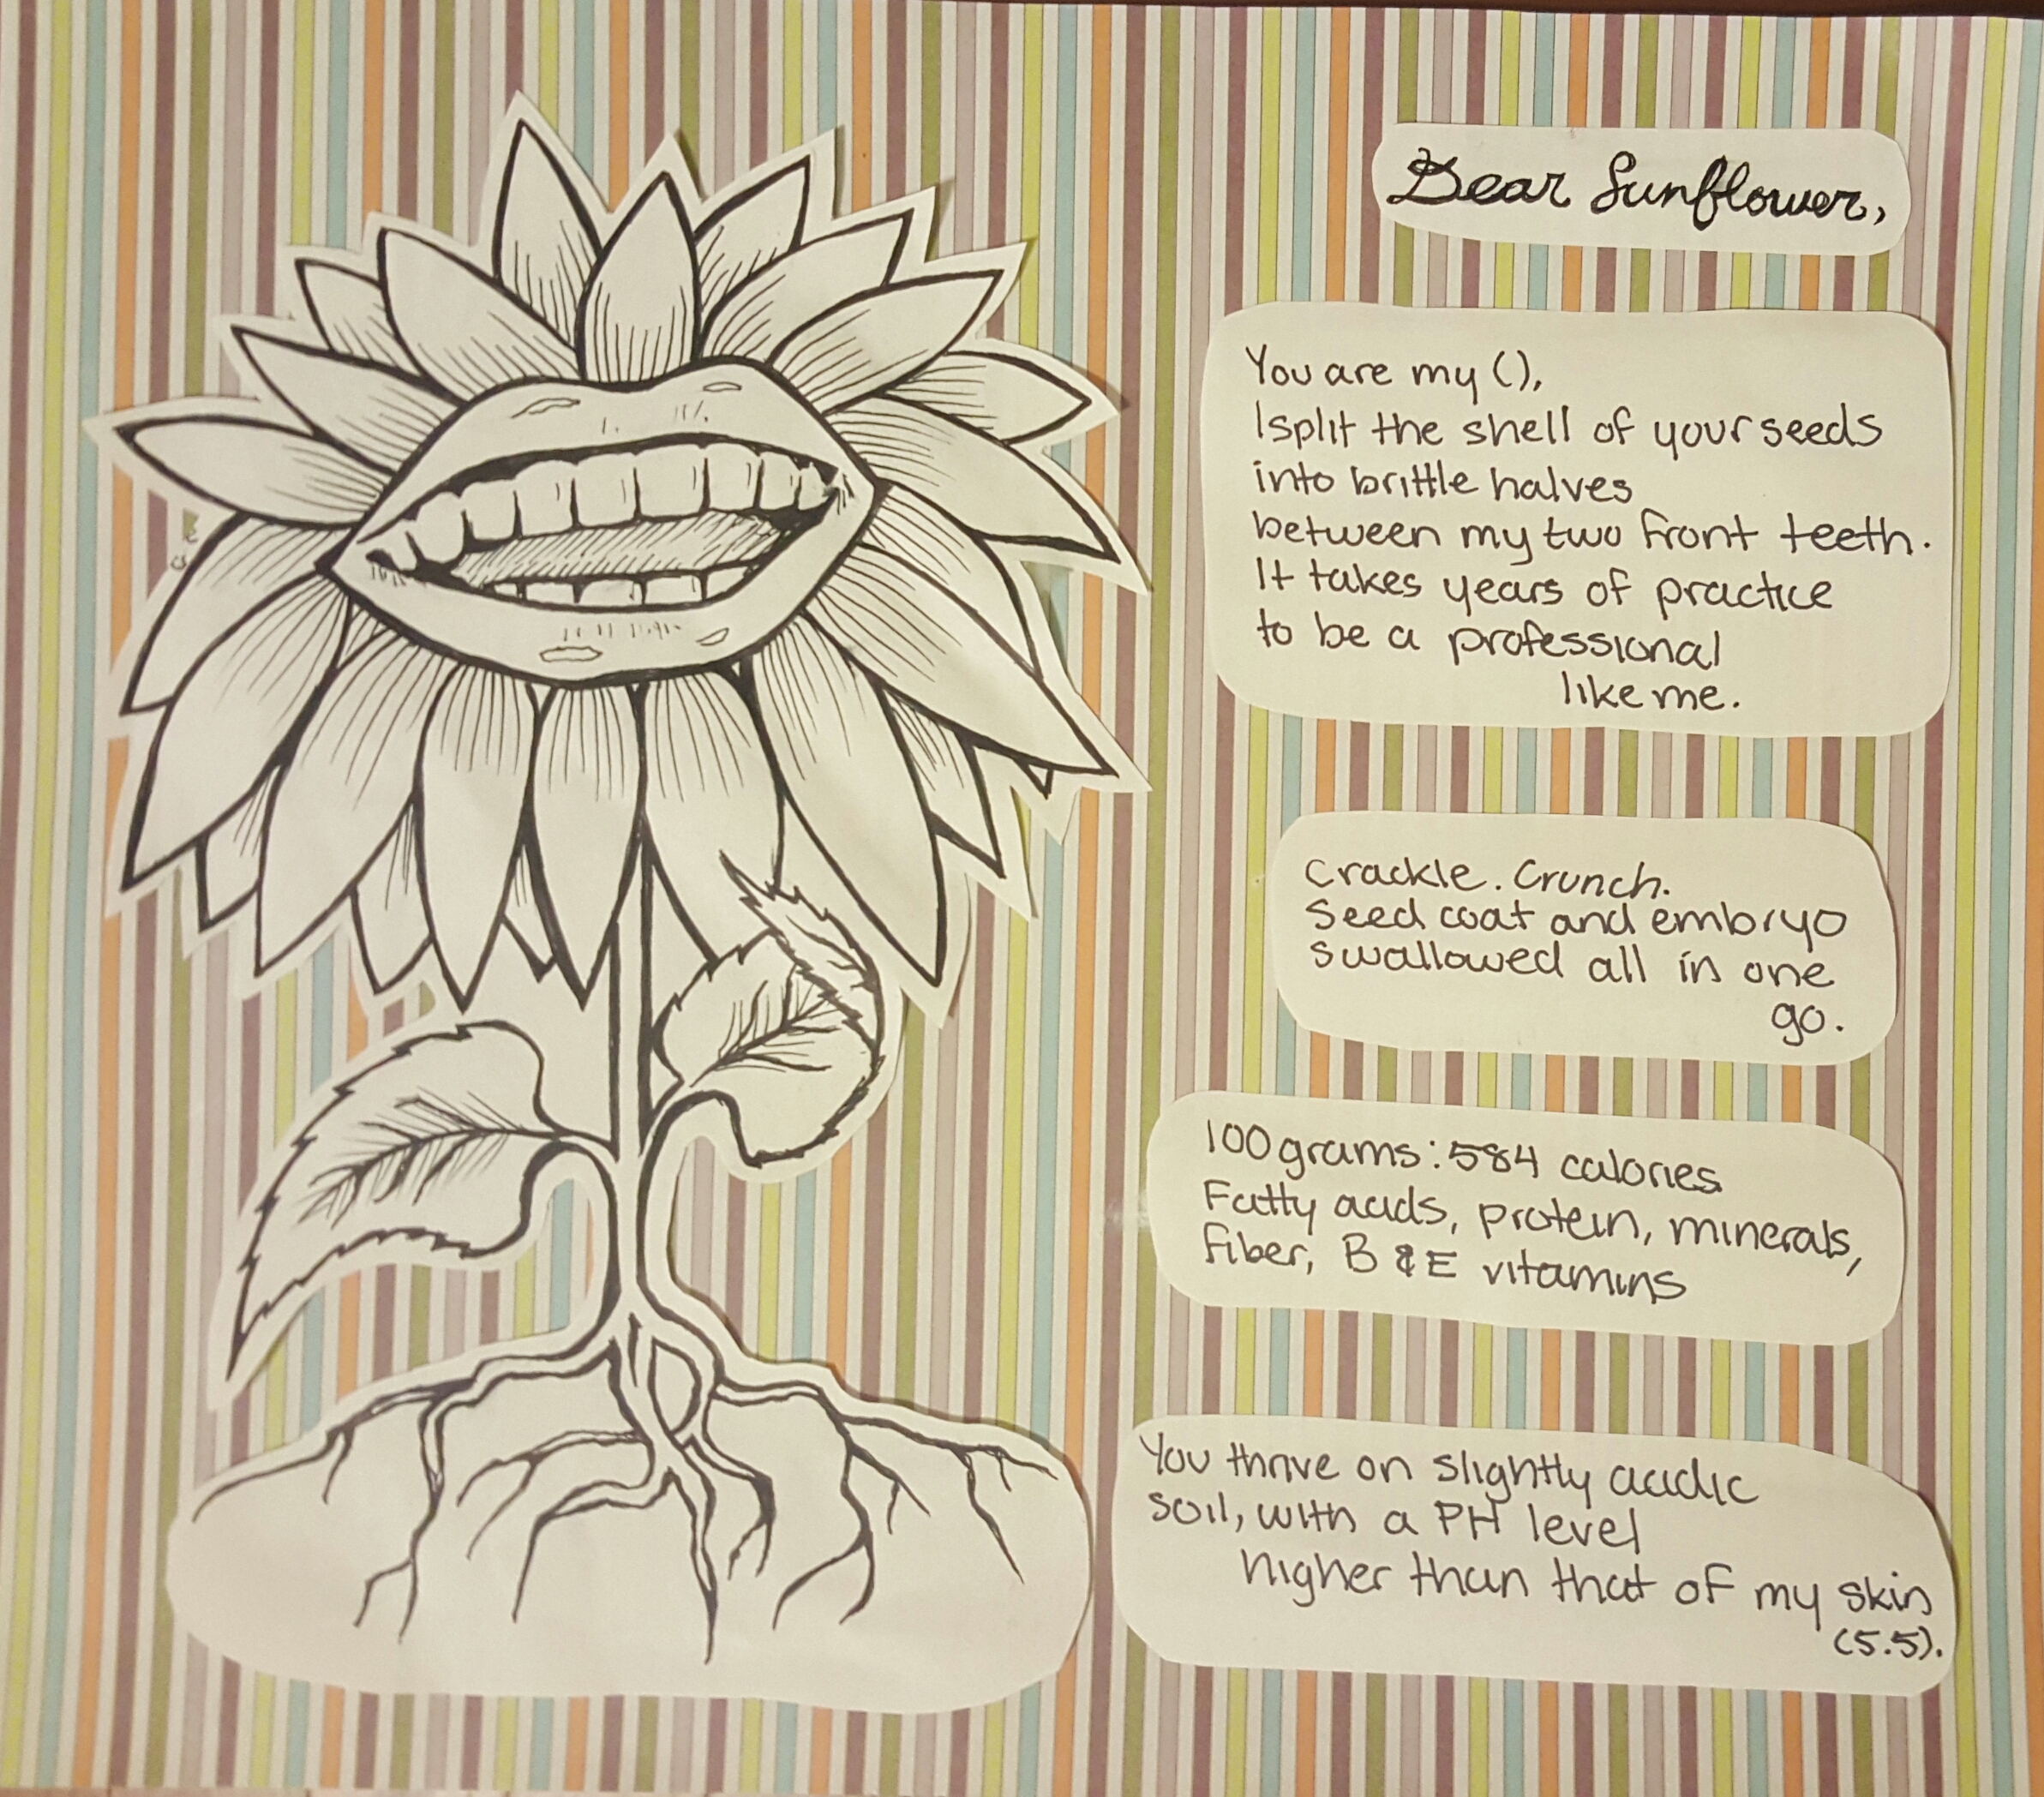 Dear Sunflower,
You are my (),
I split the shell of your seeds
into brittle halves
between my two front teeth.
It takes years of practice
to be a professional
like me.
Crackle. Crunch.
Seed coat and embryo
swallowed all in one
go.
100 grams: 584 calories
Fatty acids, protein, minerals,
fiber, B & E vitamins
You thrive on slightly acidic
soil, with a PH level
higher than that of my skin
(5.5).